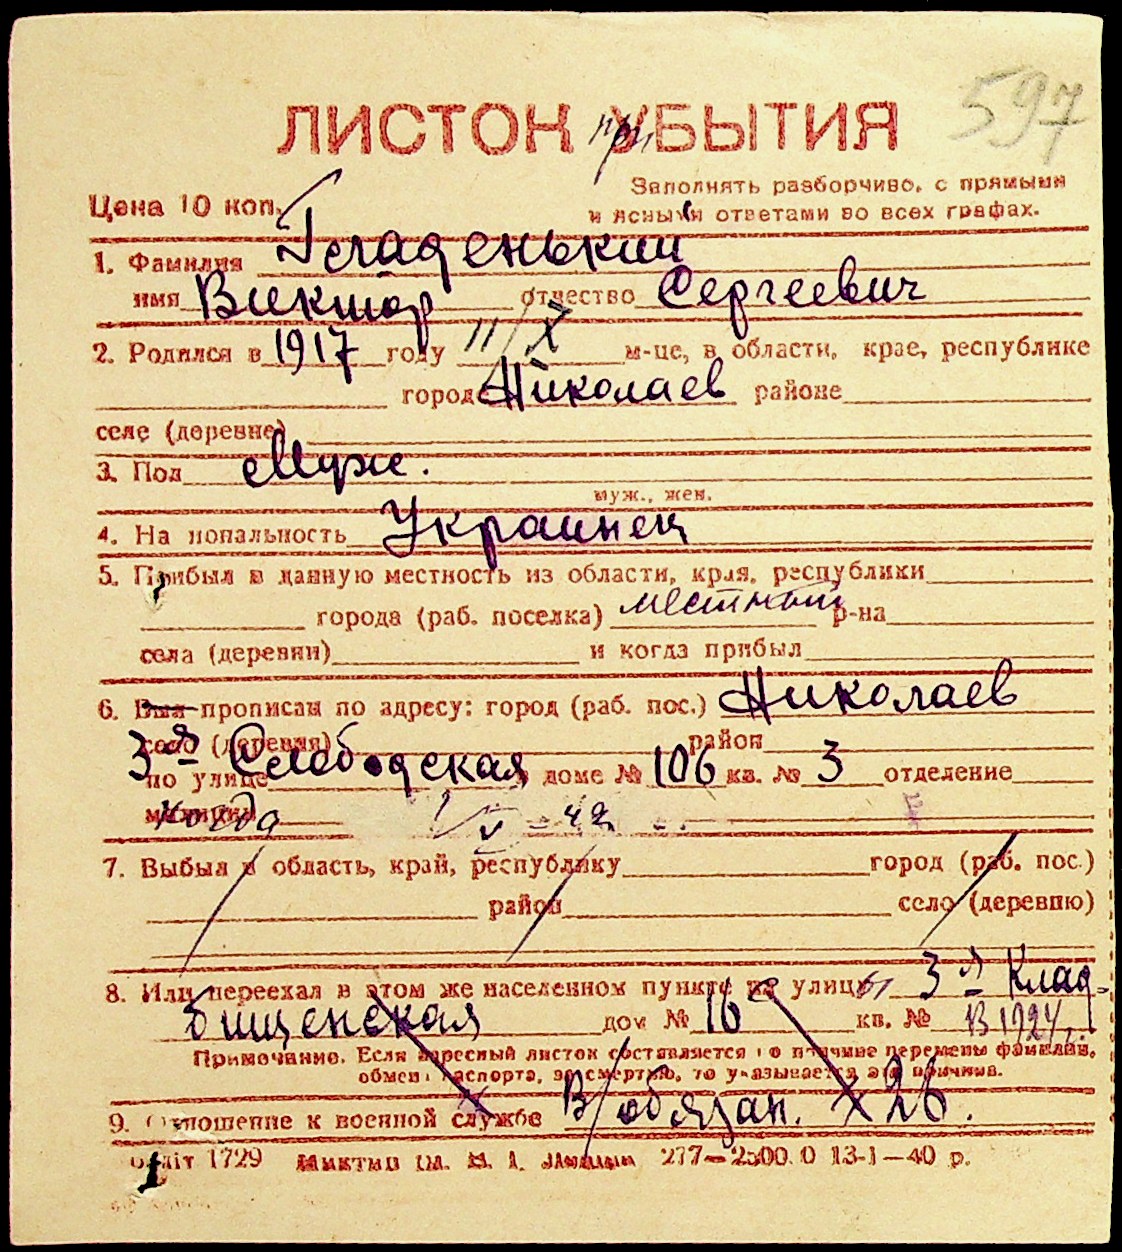 597
ЛИСТОК при УБЫТИЯ
Заполнять разборчиво, с прямыми
Цена 10 коп.
и ясными ответами во всех графах.
1. Фамилия Гладенький
имя Виктор отчество Сергеевич
2. Родился в 1917 году 11/X м-це, в области, крае, республике
город Николаев районе
селе (деревне)
3. Пол Муж.
муж., жен.
4. Национальность Украинец
5. Прибыл в данную местность из области, края, республики
города (раб. поселка) местный р-на
села (деревни) и когда прибыл
6. Был прописан по адресу: город (раб. пос.) Николаев
село (деревня) район
3-я Слободская
по улице доме № 106 кв. № 3 отделение
милиции когда V-42
7. Выбыл в область, край, республику город (раб. пос.)
район село (деревню)
8. Или переехал в этом же населенном пункте на улицу 3-я Клад-
бищенская дом № 16 кв. № В 1924 г.
Примечание. Если адресный листок составляется по причине перемены фамилии,
обмен паспорта, за смертью, то указывается эта причина.
9. Отношение к военной службе В/обязан. X 26.
обліт 1729 277—2500.0 13-I—40 р.